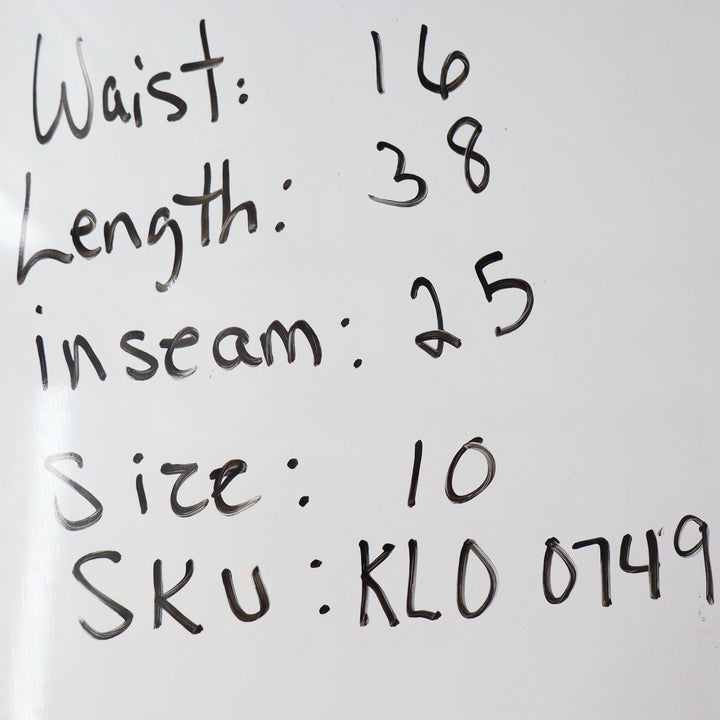 Waist: 16
Length: 38
inseam: 25
Size: 10
SKU: KLO 0749